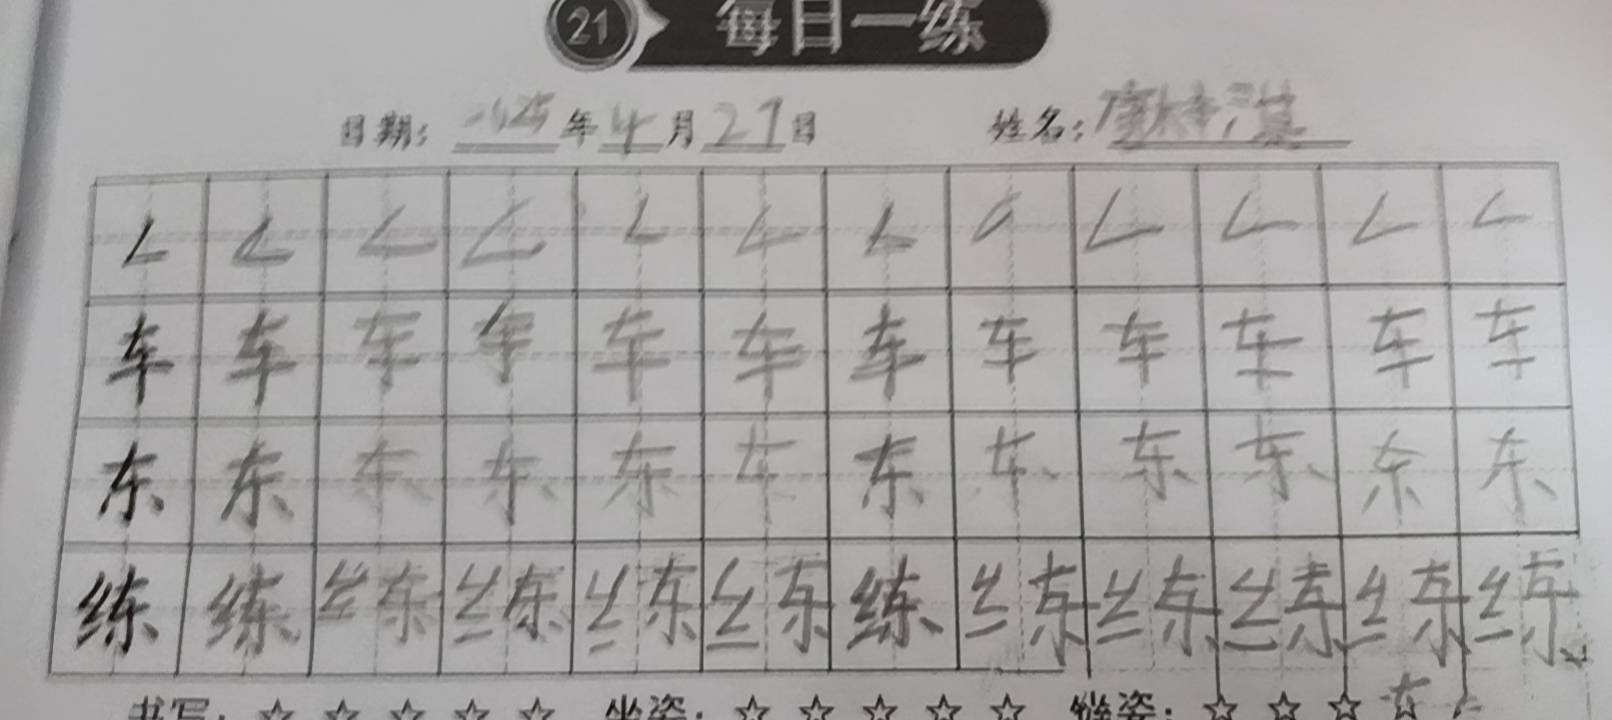 21 每日一练
日期: 2025年4月27日 姓名:
ㄥ ㄥ ㄥ ㄥ ㄥ ㄥ ㄥ ㄥ ㄥ ㄥ ㄥ
车 车 车 车 车 车 车 车 车 车 车 车
东 东 东 东 东 东 东 东 东 东 东 东
练 练 练 练 练 练 练 练 练 练 练 练
书写: ☆ ☆ ☆ ☆ ☆ 坐姿: ☆ ☆ ☆ ☆ ☆ 握姿: ☆ ☆ ☆